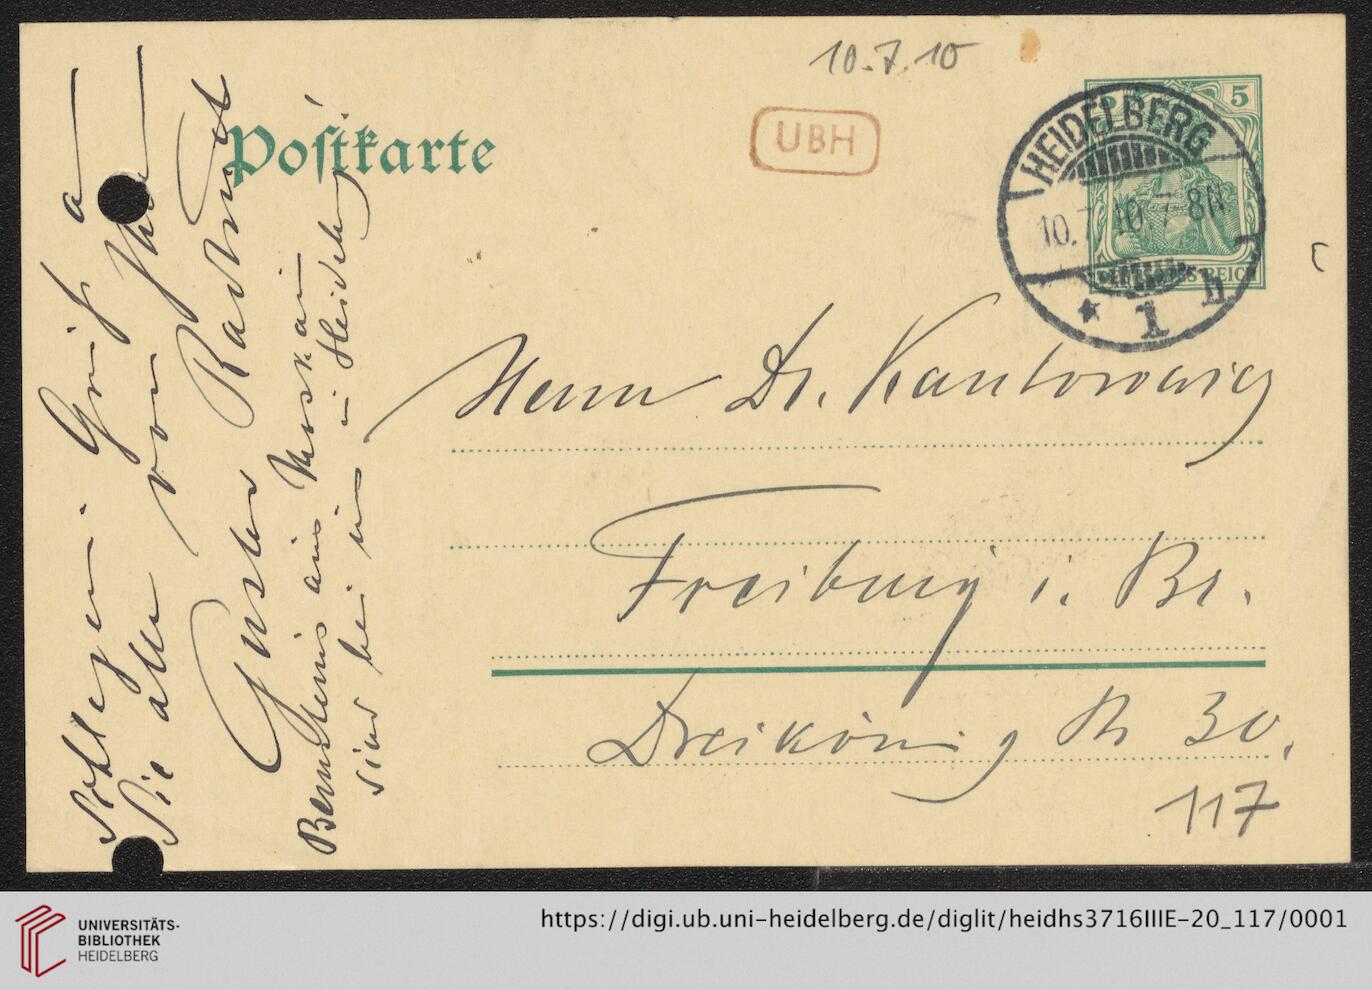 10.7.10
Postkarte
UBH
5
HEIDELBERG
10.7.10.7-8N
* 1 h
DEUTSCHES REICH
Herrn Dr. Kantorowicz
Freiburg i. Br.
Dreikönigstr 30.
117
schlagen. Grüß
Sie alle von Ihrem
Gustav Radbruch
Bernsteins aus Moskau
sind bei uns in Heidelberg
UNIVERSITÄTS-
BIBLIOTHEK
HEIDELBERG
https://digi.ub.uni-heidelberg.de/diglit/heidhs3716IIIE-20_117/0001